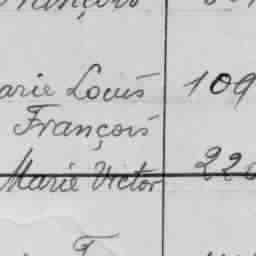 François
arie Louis 109
François
Marie Victor 220